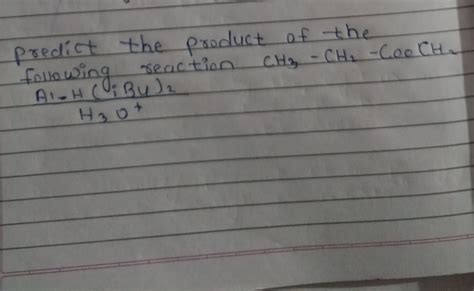 predict the product of the
following reaction CH3 - CH2 - COOCH3
Al-H(iBu)2
H3O+